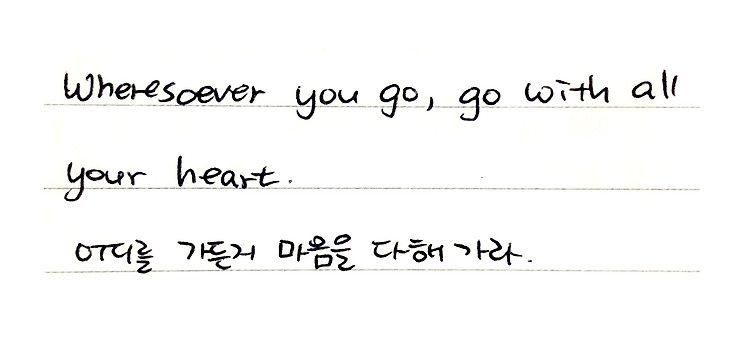 Wheresoever you go, go with all
your heart.
어디를 가든지 마음을 다해 가라.